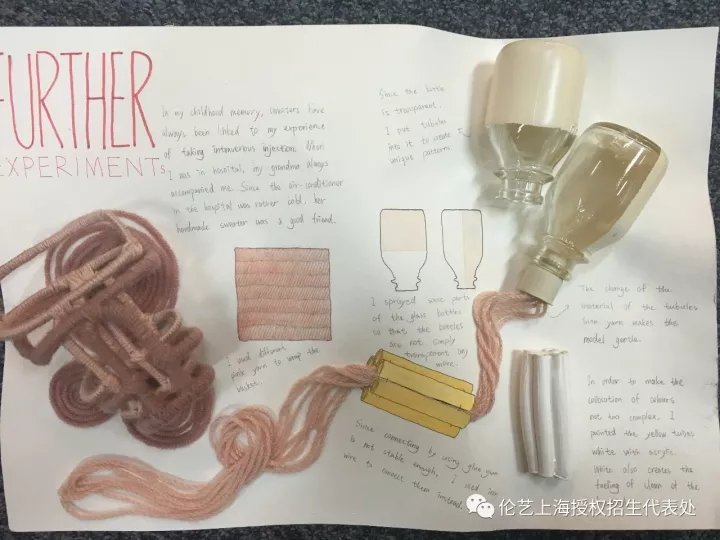 FURTHER
EXPERIMENTS
In my childhood memory, sweaters have
always been linked to my experience
of taking intravenous injection. When
I was in hospital, my grandma always
accompanied me. Since the air-conditioner
in the hospital was rather cold, her
handmade sweater was a good friend.
Since the bottle
is transparent,
I put tubules
into it to create
unique patterns.
I used different
pink yarn to wrap the
basket.
I sprayed some parts
of the glass bottles
so that the bottles
are not simply
transparent any
more.
The change of the
material of the tubules
from yarn makes the
model gentle.
Since connecting by using glue gun
is not stable enough, I used
wire to connect them instead.
In order to make the
collocation of colours
not too complex, I
painted the yellow tubes
white with acrylic.
White also creates the
feeling of clean of the
伦艺上海授权招生代表处